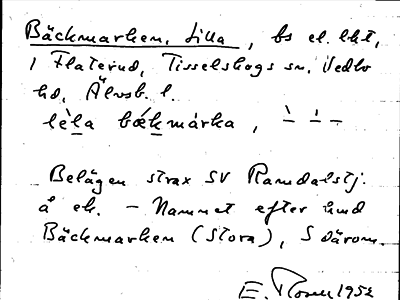 Bäckmarken, Lilla, bs el. lht,
i Flaterud, Tisselskogs sn, Vedbo
hd, Älvsb. l.
lè̱la bǽ̱kmárka, ̀– ́– –
Belägen strax SV Ramdalstj.
å ek. – Namnet efter hmd
Bäckmarken (Stora), S därom.
E. Rosen 1952